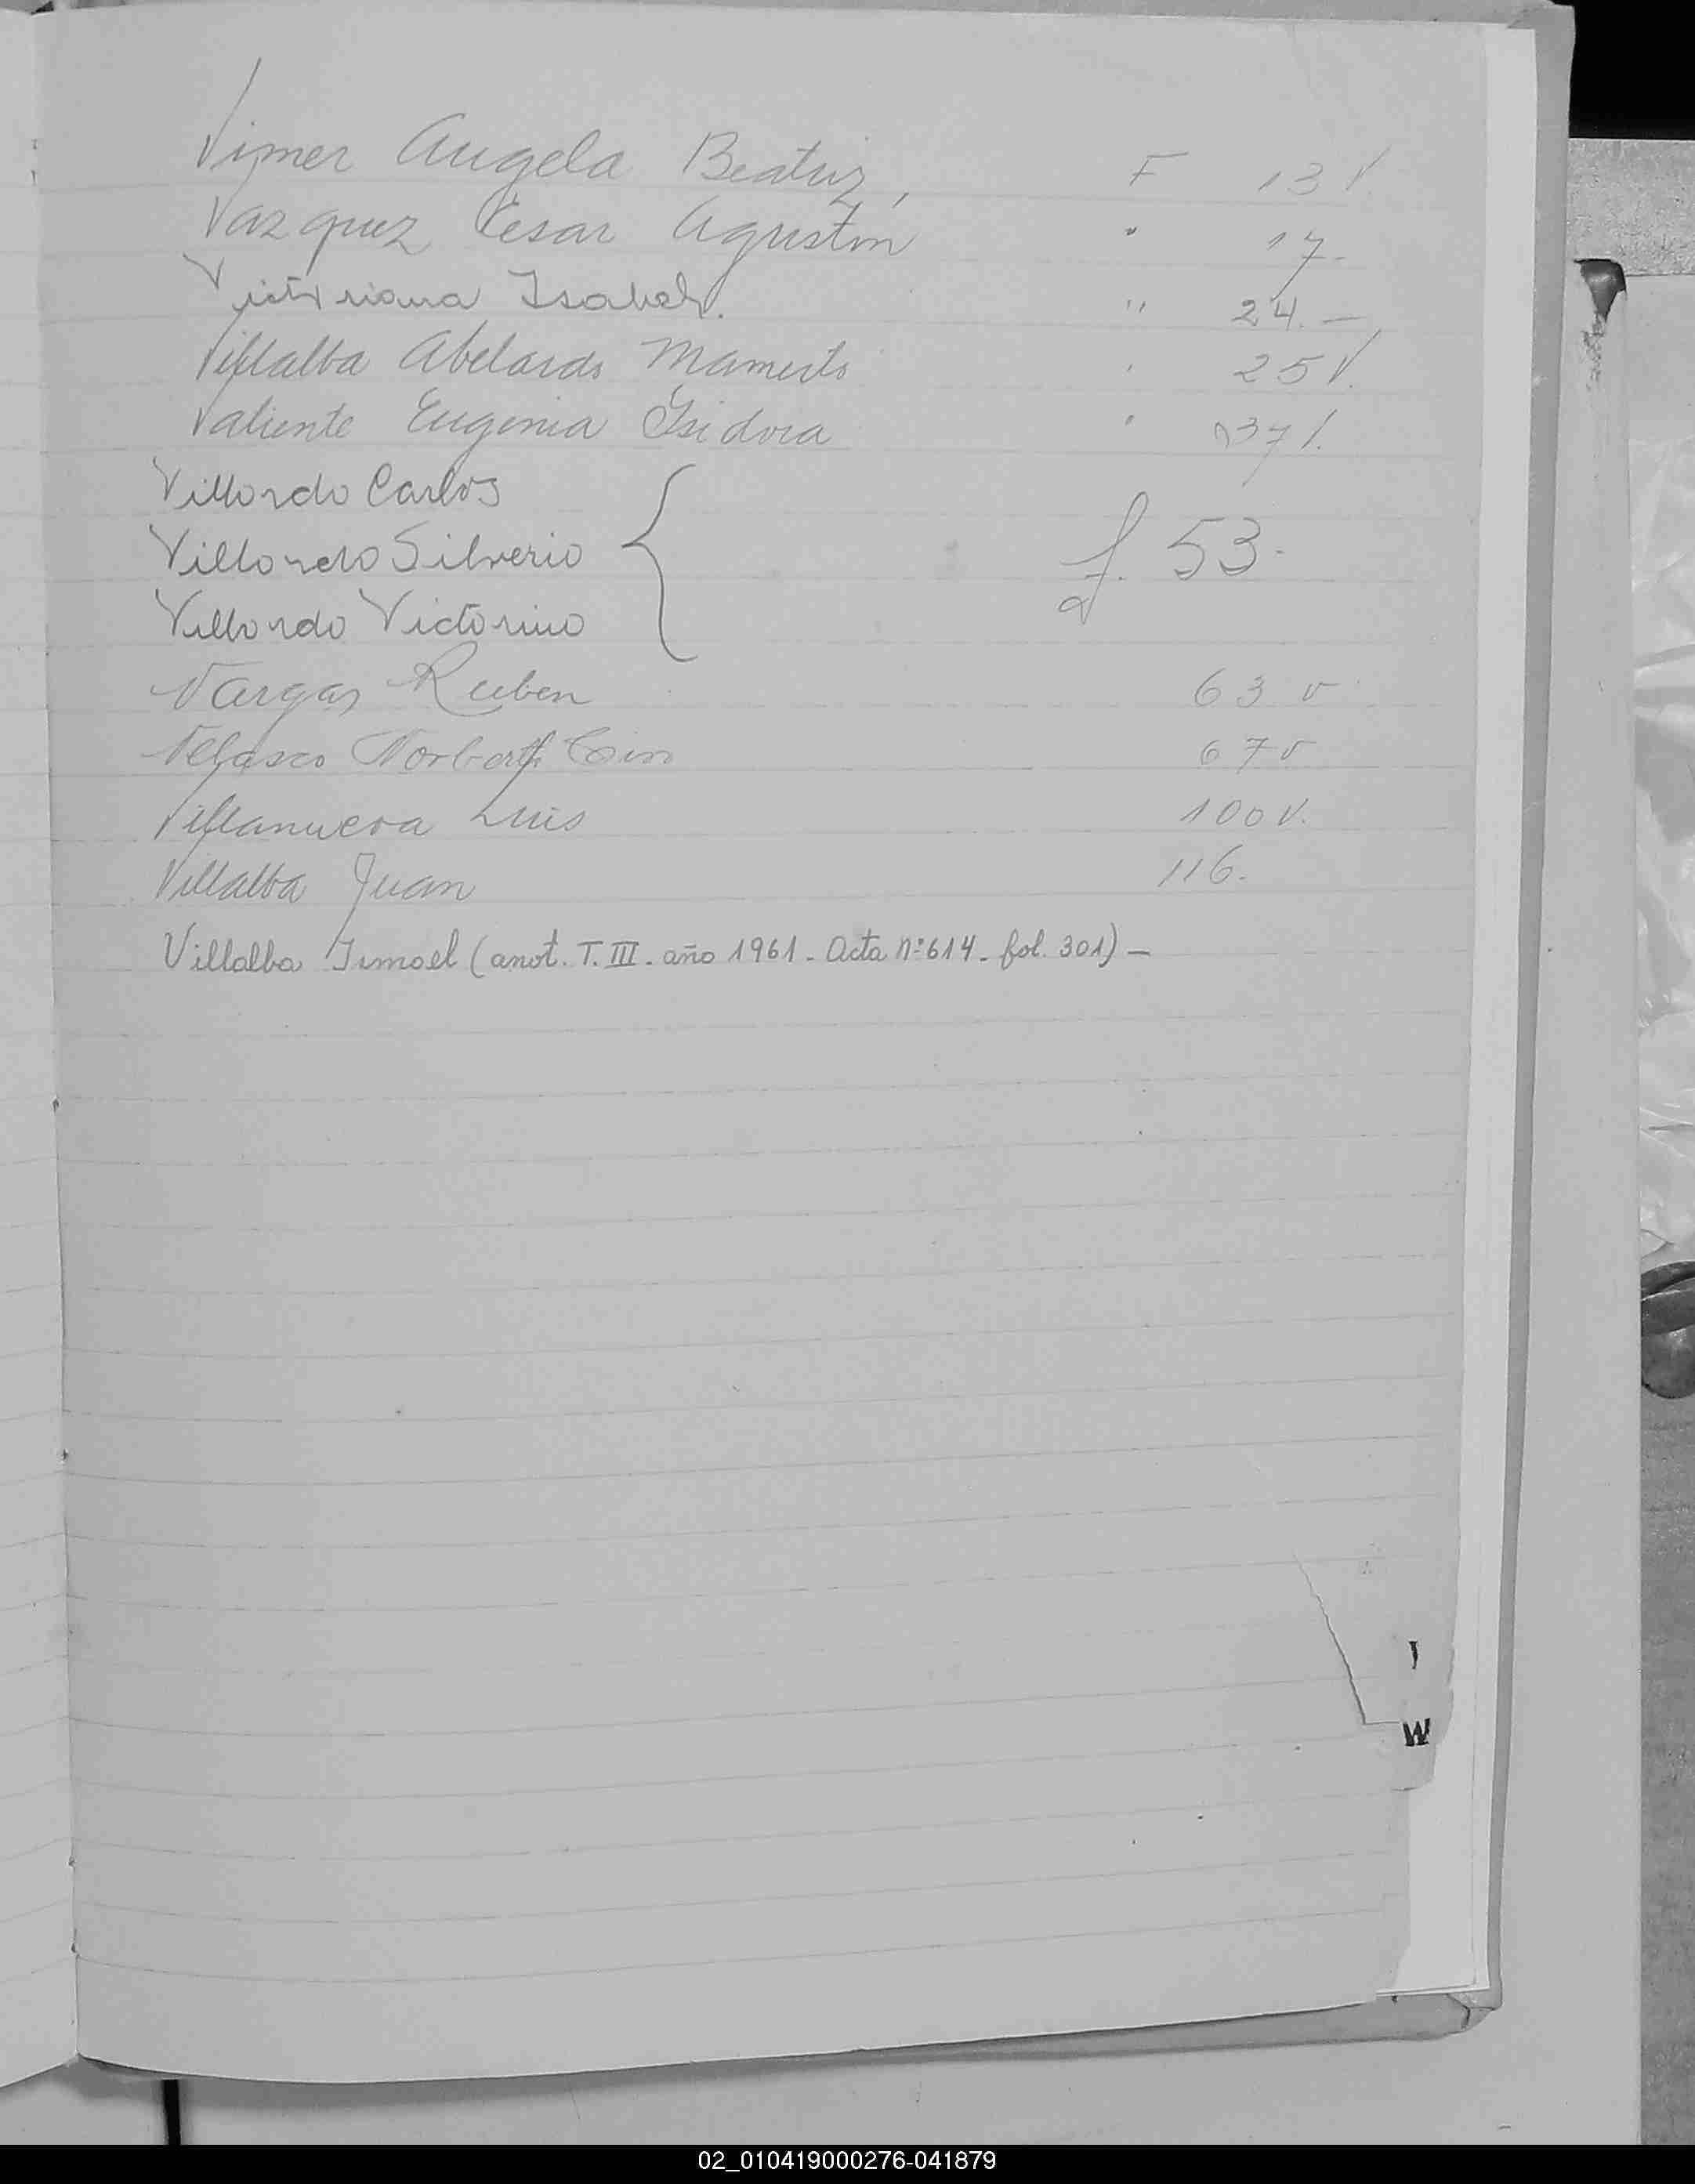 Vimer Angela Beatriz, F 13 V.
Vazquez Cesar Agustin " 17-
Victoriana Isabel. " 24. —
Villalba Abelardo Mamerto " 25 V.
Valiente Eugenia Isidora " 37 V.
Villordo Carlos
Villordo Silverio f. 53-
Villordo Victorino
Vargas Ruben 63 v
Velasco Norberto 67 v
Villanueva Luis 100 V.
Villalba Juan 116.
Villalba Ismael (anot. T. III. año 1961 - Acta nº 614 - fol. 301) —
W
02_010419000276-041879